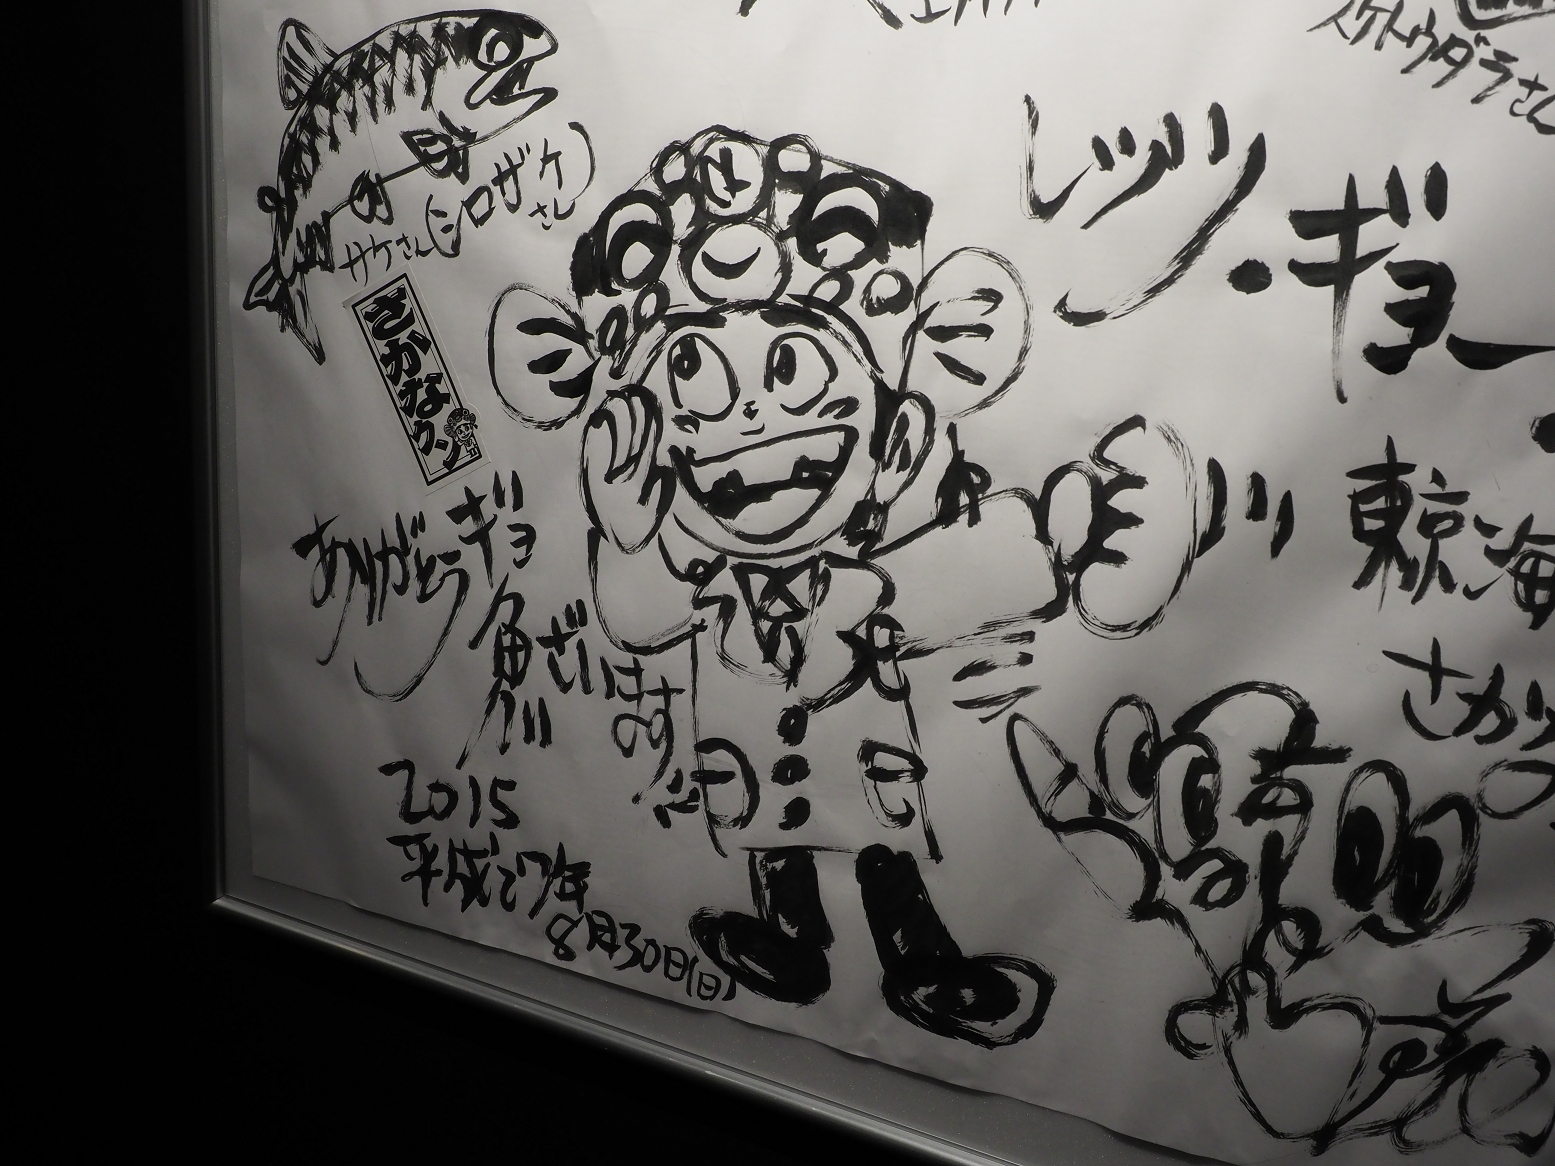 スケトウダラさん
サケさん(シロザケさん)
さかなクン
レッツ・ギョー
ありがとうギョ
魚ざいます
2015
平成27年
8月30日(日)
東京海
さか